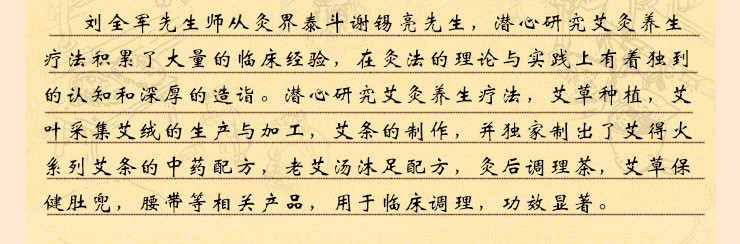 刘全军先生师从灸界泰斗谢锡亮先生，潜心研究艾灸养生
疗法积累了大量的临床经验，在灸法的理论与实践上有着独到
的认知和深厚的造诣。潜心研究艾灸养生疗法，艾草种植，艾
叶采集艾绒的生产与加工，艾条的制作，并独家制出了艾得火
系列艾条的中药配方，老艾汤沐足配方，灸后调理茶，艾草保
健肚兜，腰带等相关产品，用于临床调理，功效显著。